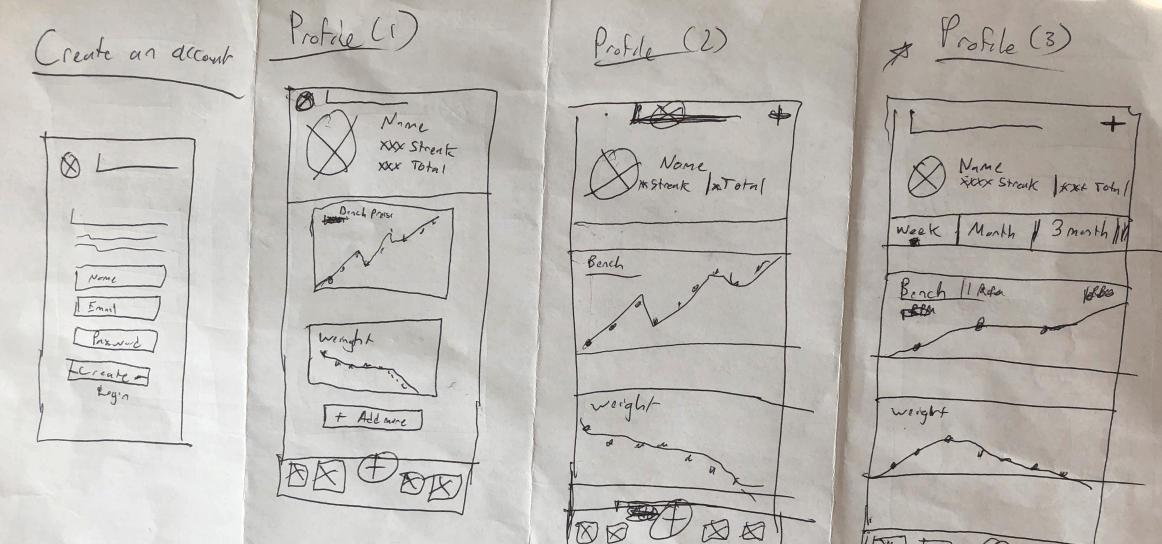 Create an account
Name
Email
Password
Create
Login
Profile (1)
Name
xxx Streak
xxx Total
Bench press
Weight
+ Add more
Profile (2)
Name
Streak | Total
Bench
Weight
Profile (3)
Name
xxxx Streak | xxx Total
Week | Month | 3 month
Bench
Weight